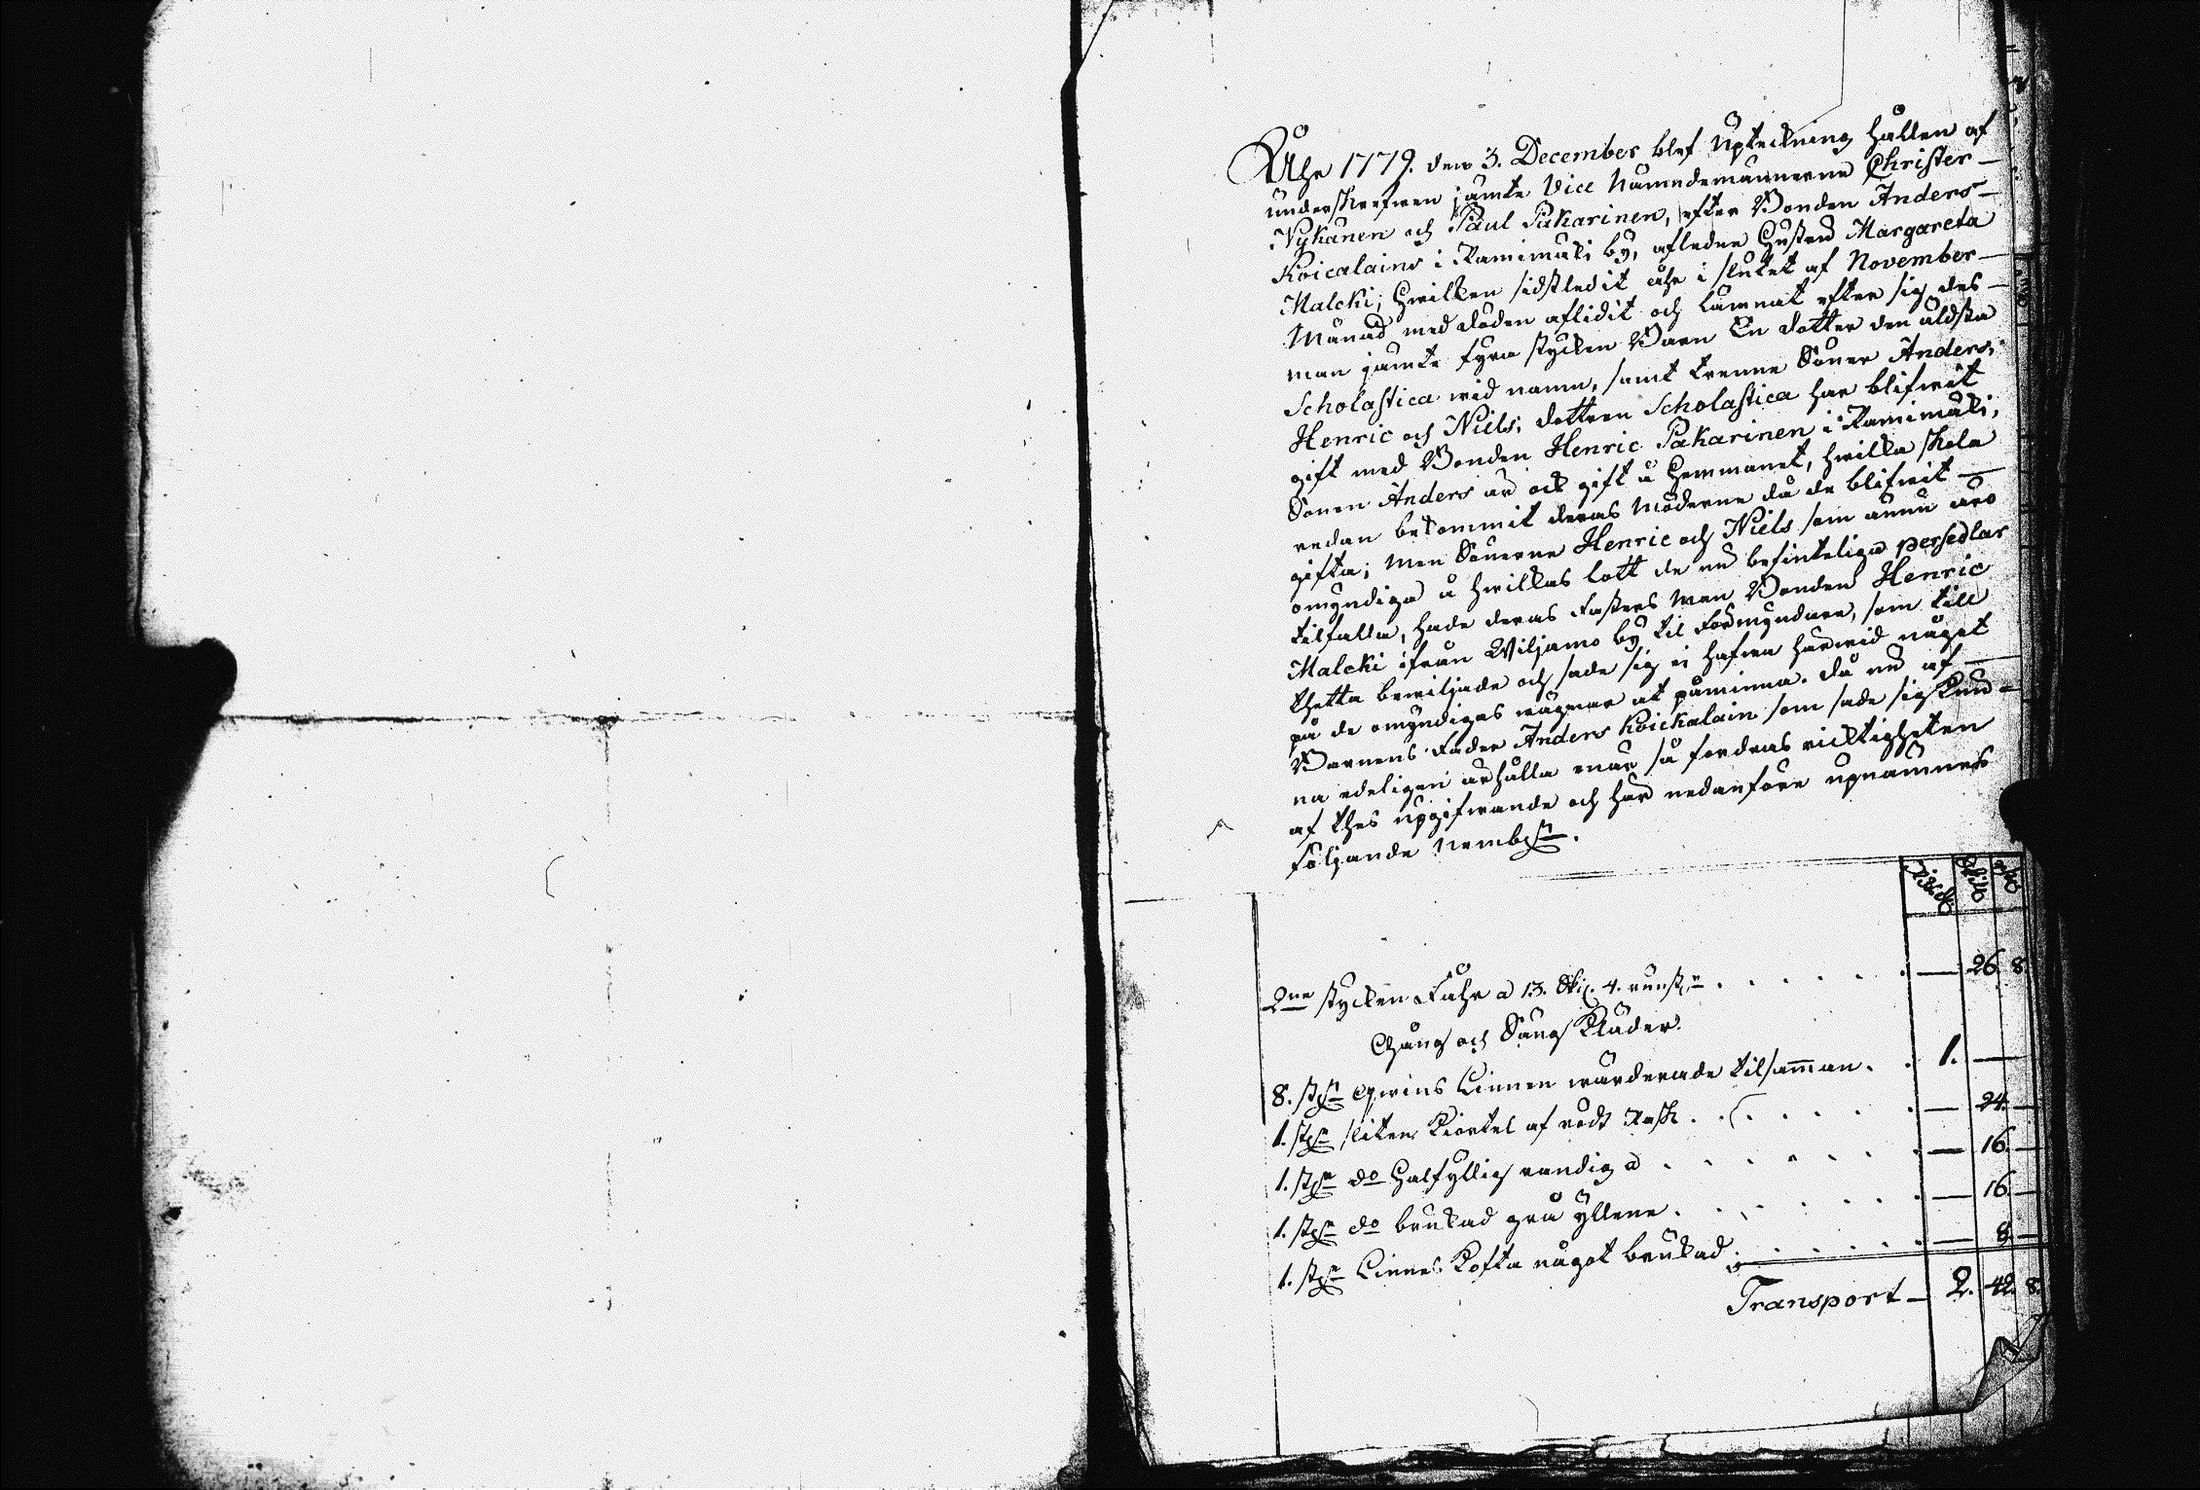 Åhr 1779. den 3. December blef Upteckning hållen af
underskrefwen jämte Vice Nämndemännerne Christer
Nykänen och Paul Pakarinen, efter Bonden Anders
Koicalains i Ranimäki by, afledne Hustru Margareta
Malcki, hwilken sidstledit åhr i slutet af November
Månad med döden aflidit och lämnat efter sig des
man jämte fyra stycken Barn En dotter den äldsta
Scholastica wid namn, samt trenne Söner Anders,
Henric och Niels, dottren Scholastica har blifwit
gift med Bonden Henric Pakarinen i Ranimäki,
Sonen Anders är ock gift å Hemmanet, hwilka skola
redan bekommit deras Möderne då de blifwit
gifta; Men Sönerne Henric och Niels som ännu äro
omyndiga å hwilkas lott de nu befinteliga persedlar
tilfalla, hade deras Fasters Man Bonden Henric
Malcki ifrån Wiljamo by til Förmyndare, som till
thetta bewiljade och sade sig ei hafwa härwid något
på de omyndigas wägnar at påminna. då nu af
Barnens Fader Anders Koickalain som sade sig kun-
na edeligen erhålla enär så fordras ricktigheten
af thes upgifwande och här nedanföre upnämnes
följande Nembl:n.
26. 8.
2ne stycken Fåhr a 13. Sk. 4. runst:r
Gång och Säng Kläder.
8. st:n qwins Linnen wärderade tilsamman. 1. —
1. st:n sliten Kiortel af rödt Rask — 24. —
1. st:n do Halfyllig randig a — 16. —
1. st:n do brukad grå yllene — 16. —
1. st:n Linnes Kofta något brukad — 8. —
Transport — 2. 42. 8.